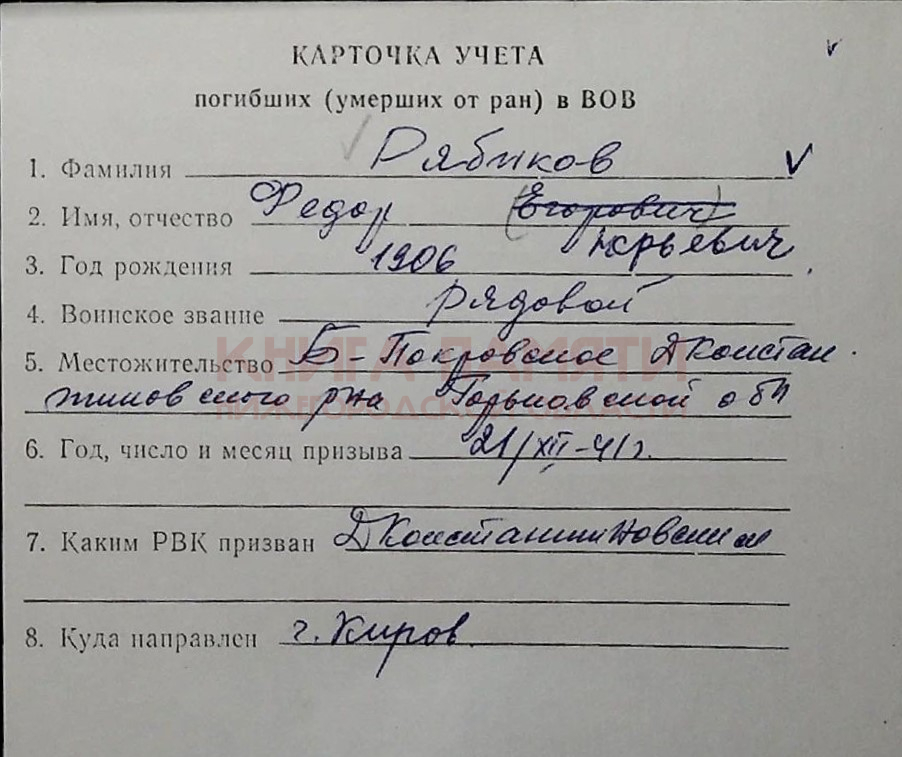 КАРТОЧКА УЧЕТА
погибших (умерших от ран) в ВОВ
1. Фамилия Рябиков
2. Имя, отчество Федор (Егорович)
Юрьевич
3. Год рождения 1906
4. Воинское звание рядовой
5. Местожительство Б-Покровское ДКонстан
тиновского рна Горьковской обл
КНИГА ПАМЯТИ
НИЖЕГОРОДСКОЙ ОБЛАСТИ
6. Год, число и месяц призыва 21/XII-41г.
7. Каким РВК призван ДКонстантиновским
8. Куда направлен г. Киров